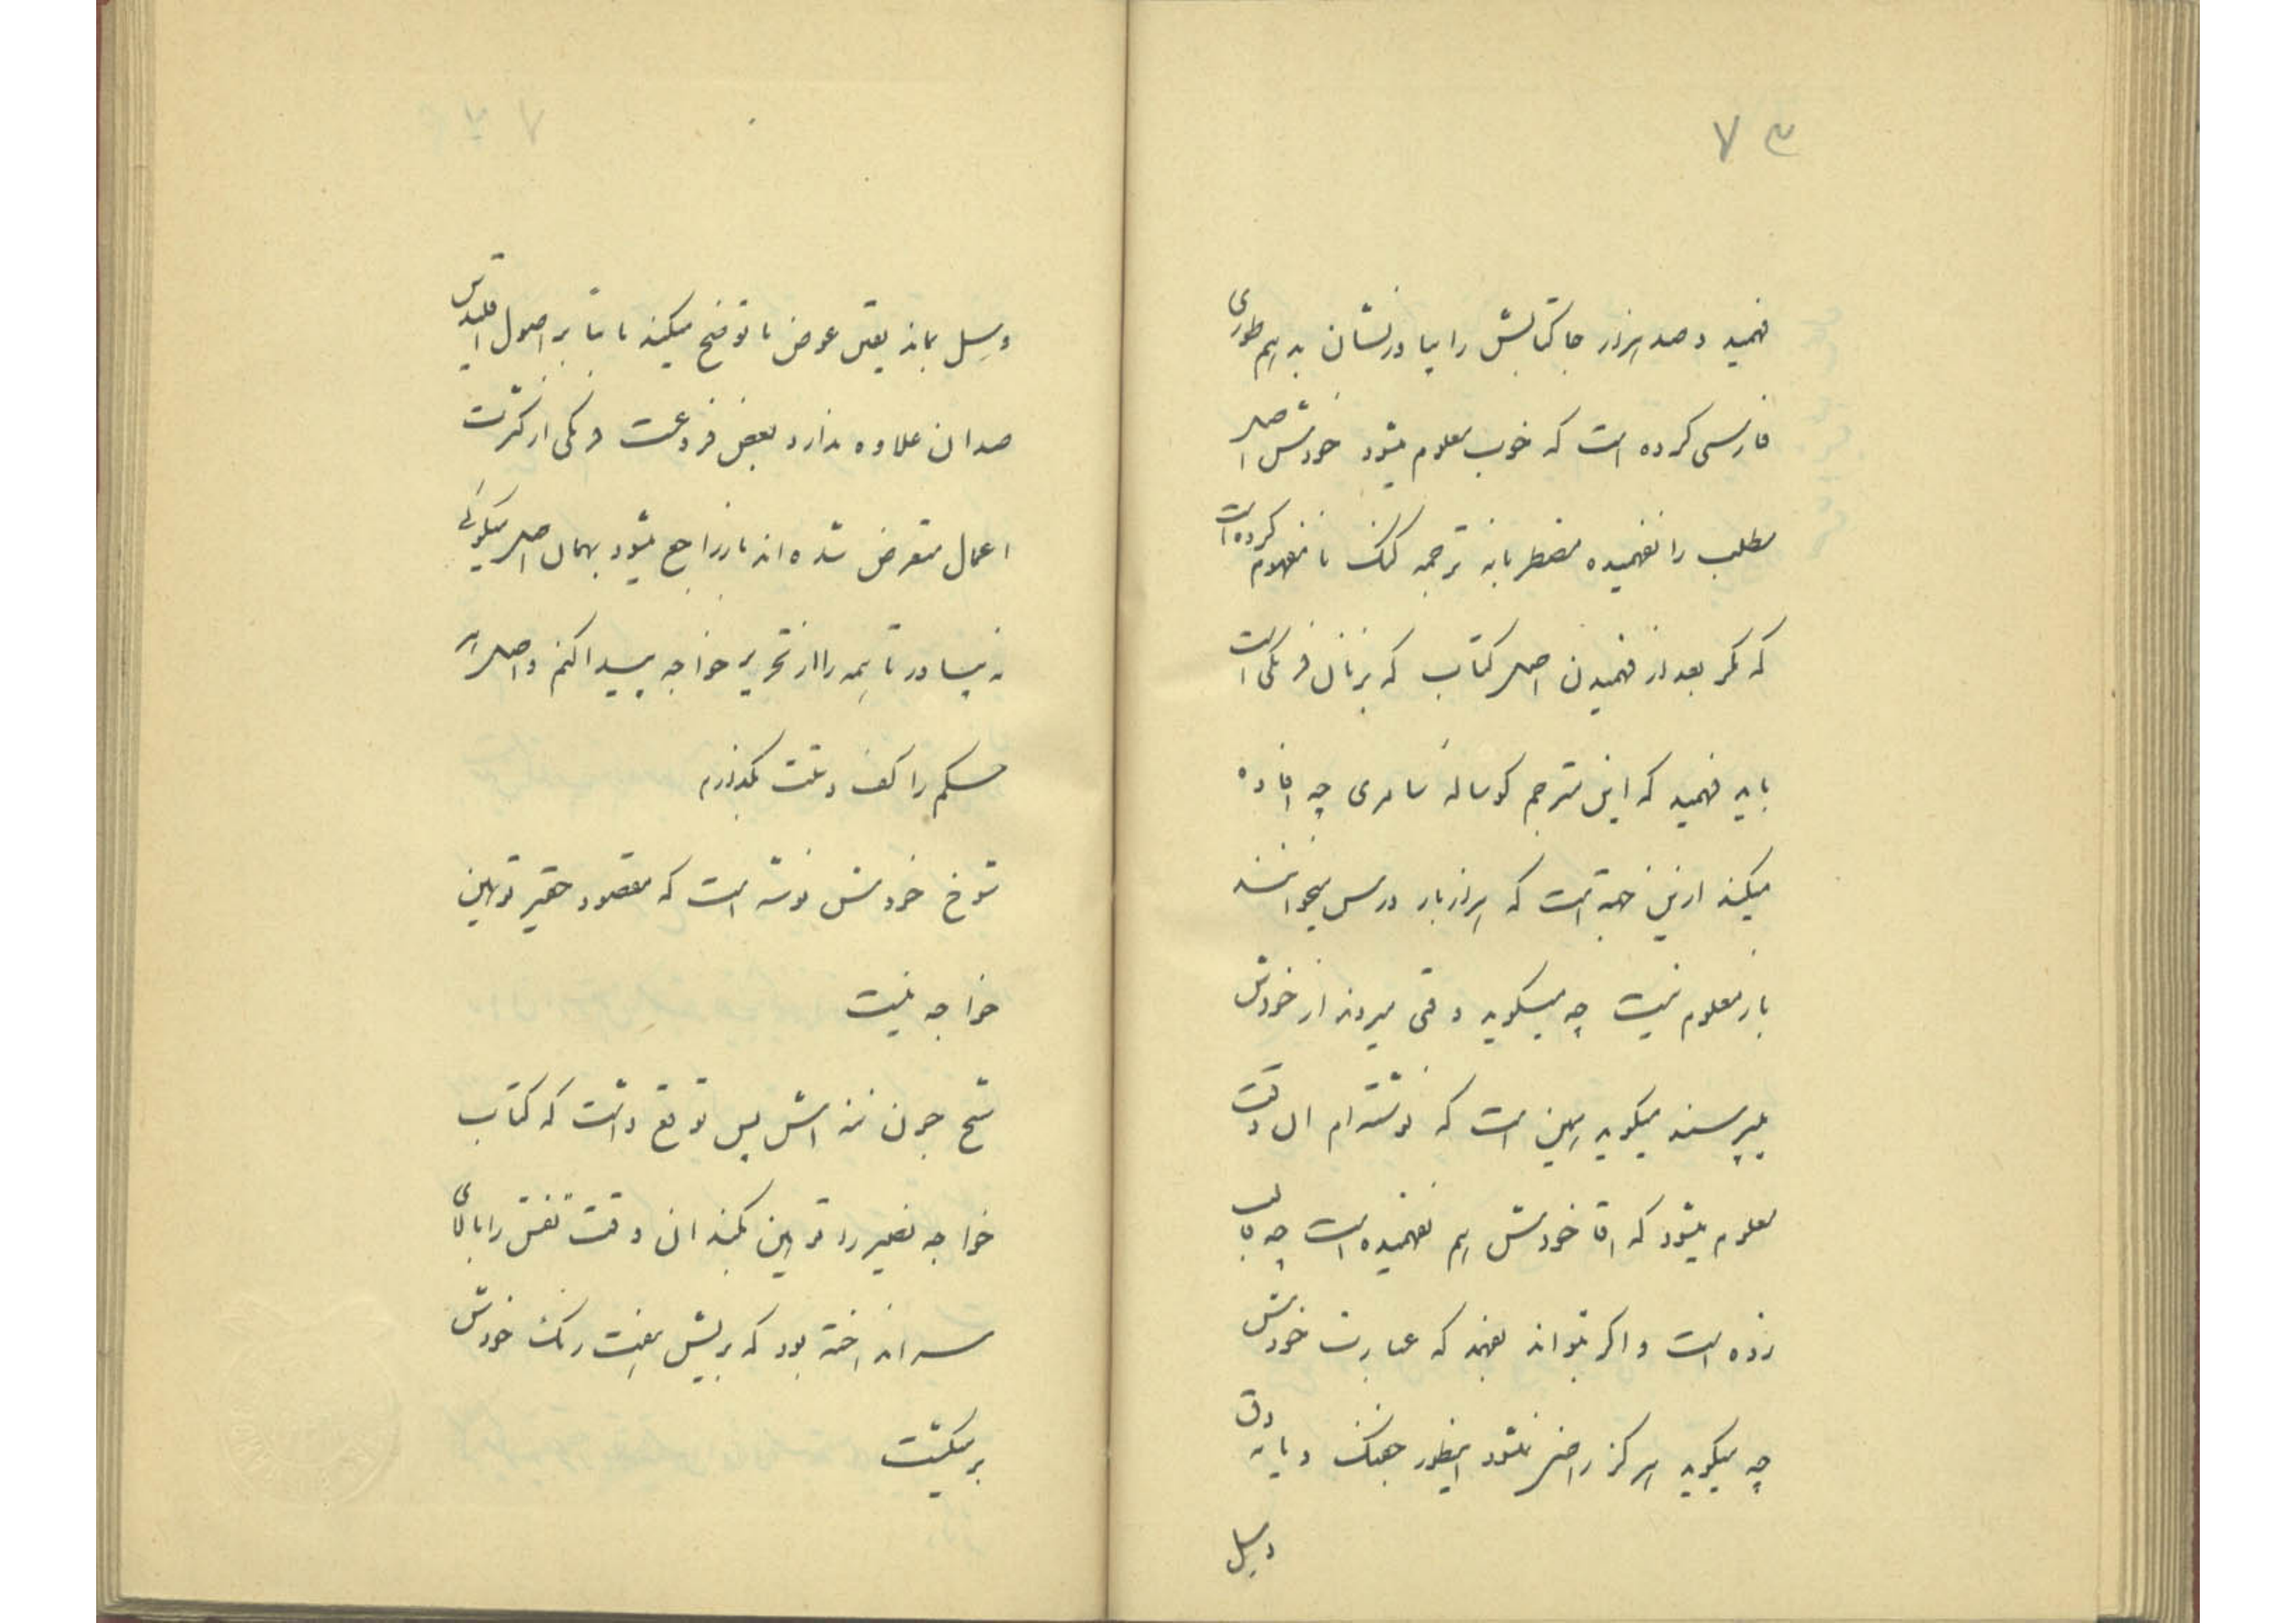 ۷۳
فهمید و صد هزار جا کتابش را بیاور نشان بدهم طوری
فارسی کرده است که خوب معلوم میشود خودش اصل
مطلب را نفهمیده مضطربانه ترجمه گنگ نامفهوم کرده است
که مگر بعد از فهمیدن اصل کتاب که بزبان فرنگی است
باید فهمید که این مترجم گوساله سامری چه افاده
میکند ازین جهة است که هزار بار درس میخوانند
باز معلوم نیست چه میگوید وقتی میروند از خودش
میپرسند میگوید همین است که نوشته‌ام ان وقت
معلوم میشود که اقا خودش هم نفهمیده است چه قالب
زده است و اگر بتواند بفهمد که عبارت خودش
چه میگوید هرگز راضی نمیشود اینطور جفنگ و بایدق
وسیل
وسیل بماند یعنی عوض ما توضح میکند ما بنا بر اصول اقلیدس
صدان علاوه ندارد بعض فروعست فرنگی از کثرت
اعمال متعرض شده‌اند باز راجع میشود بهمان اصل میگوئی
نه بیاور تا همه را از تحریر خواجه پیدا کنم و اصل هر
حکم را کف دستت بگذارم
شوخ خودش نوشته است که مقصود حقیر توهین
خواجه نیست
شح چون ننه‌اش پس توقع داشت که کتاب
خواجه نصیر را توهین بکند ان وقت تفش را بالای
سر انداخته بود که بریش هفت رنگ خودش
برمیگشت